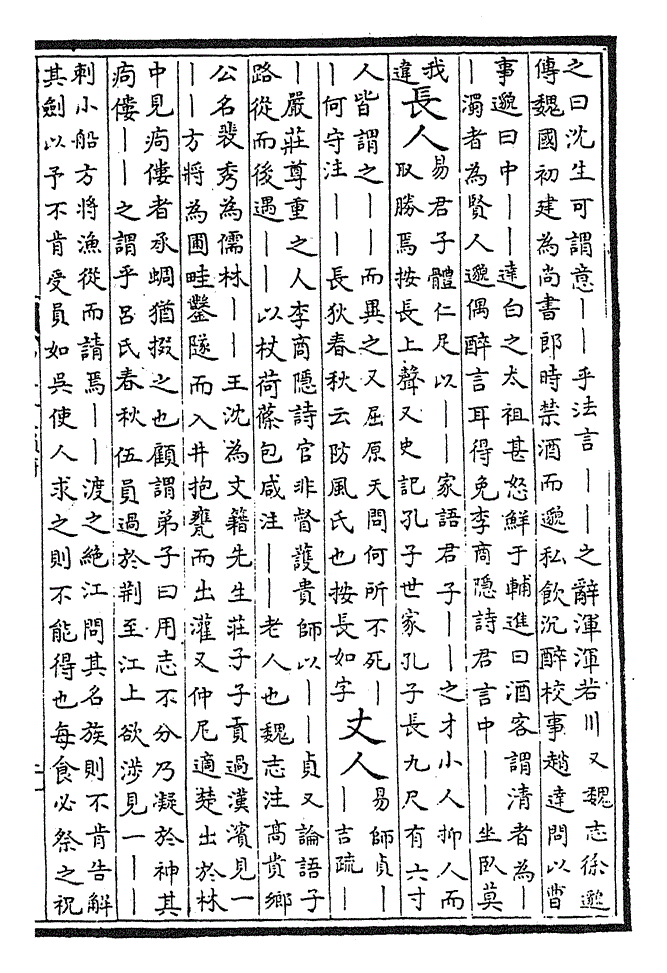 之曰沈生可謂意〡〡乎法言〡〡之辭渾渾若川又魏志徐邈
傳魏國初建為尚書郎時禁酒而邈私飲沉醉校事趙達問以曹
事邈曰中〡〡達白之太祖甚怒鮮于輔進曰酒客謂清者為〡
〡濁者為賢人邈偶醉言耳得免李商隱詩君言中〡〡坐臥莫
我
違
長人
易君子體仁足以〡〡家語君子〡〡之才小人抑人而
取勝焉按長上聲又史記孔子世家孔子長九尺有六寸
人皆謂之〡〡而異之又屈原天問何所不死〡
〡何守注〡〡長狄春秋云防風氏也按長如字
丈人
易師貞〡
〡吉疏〡
〡嚴莊尊重之人李商隱詩官非督護貴師以〡〡貞又論語子
路從而後遇〡〡以杖荷蓧包咸注〡〡老人也魏志注高貴鄉
公名裴秀為儒林〡〡王沈為文籍先生莊子子貢過漢濱見一
〡〡方將為圃畦鑿隧而入井抱甕而出灌又仲尼適楚出於林
中見痀僂者承蜩猶掇之也顧謂弟子曰用志不分乃凝於神其
痀僂〡〡之謂乎呂氏春秋伍員過於荆至江上欲涉見一〡〡
刺小船方將漁從而請焉〡〡渡之絕江問其名族則不肯告解
其劍以予不肯受員如吳使人求之則不能得也每食必祭之祝